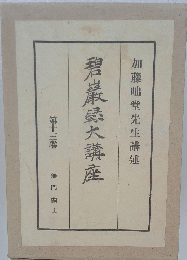 加藤咄堂先生講述
碧巌録大講座
第十三巻